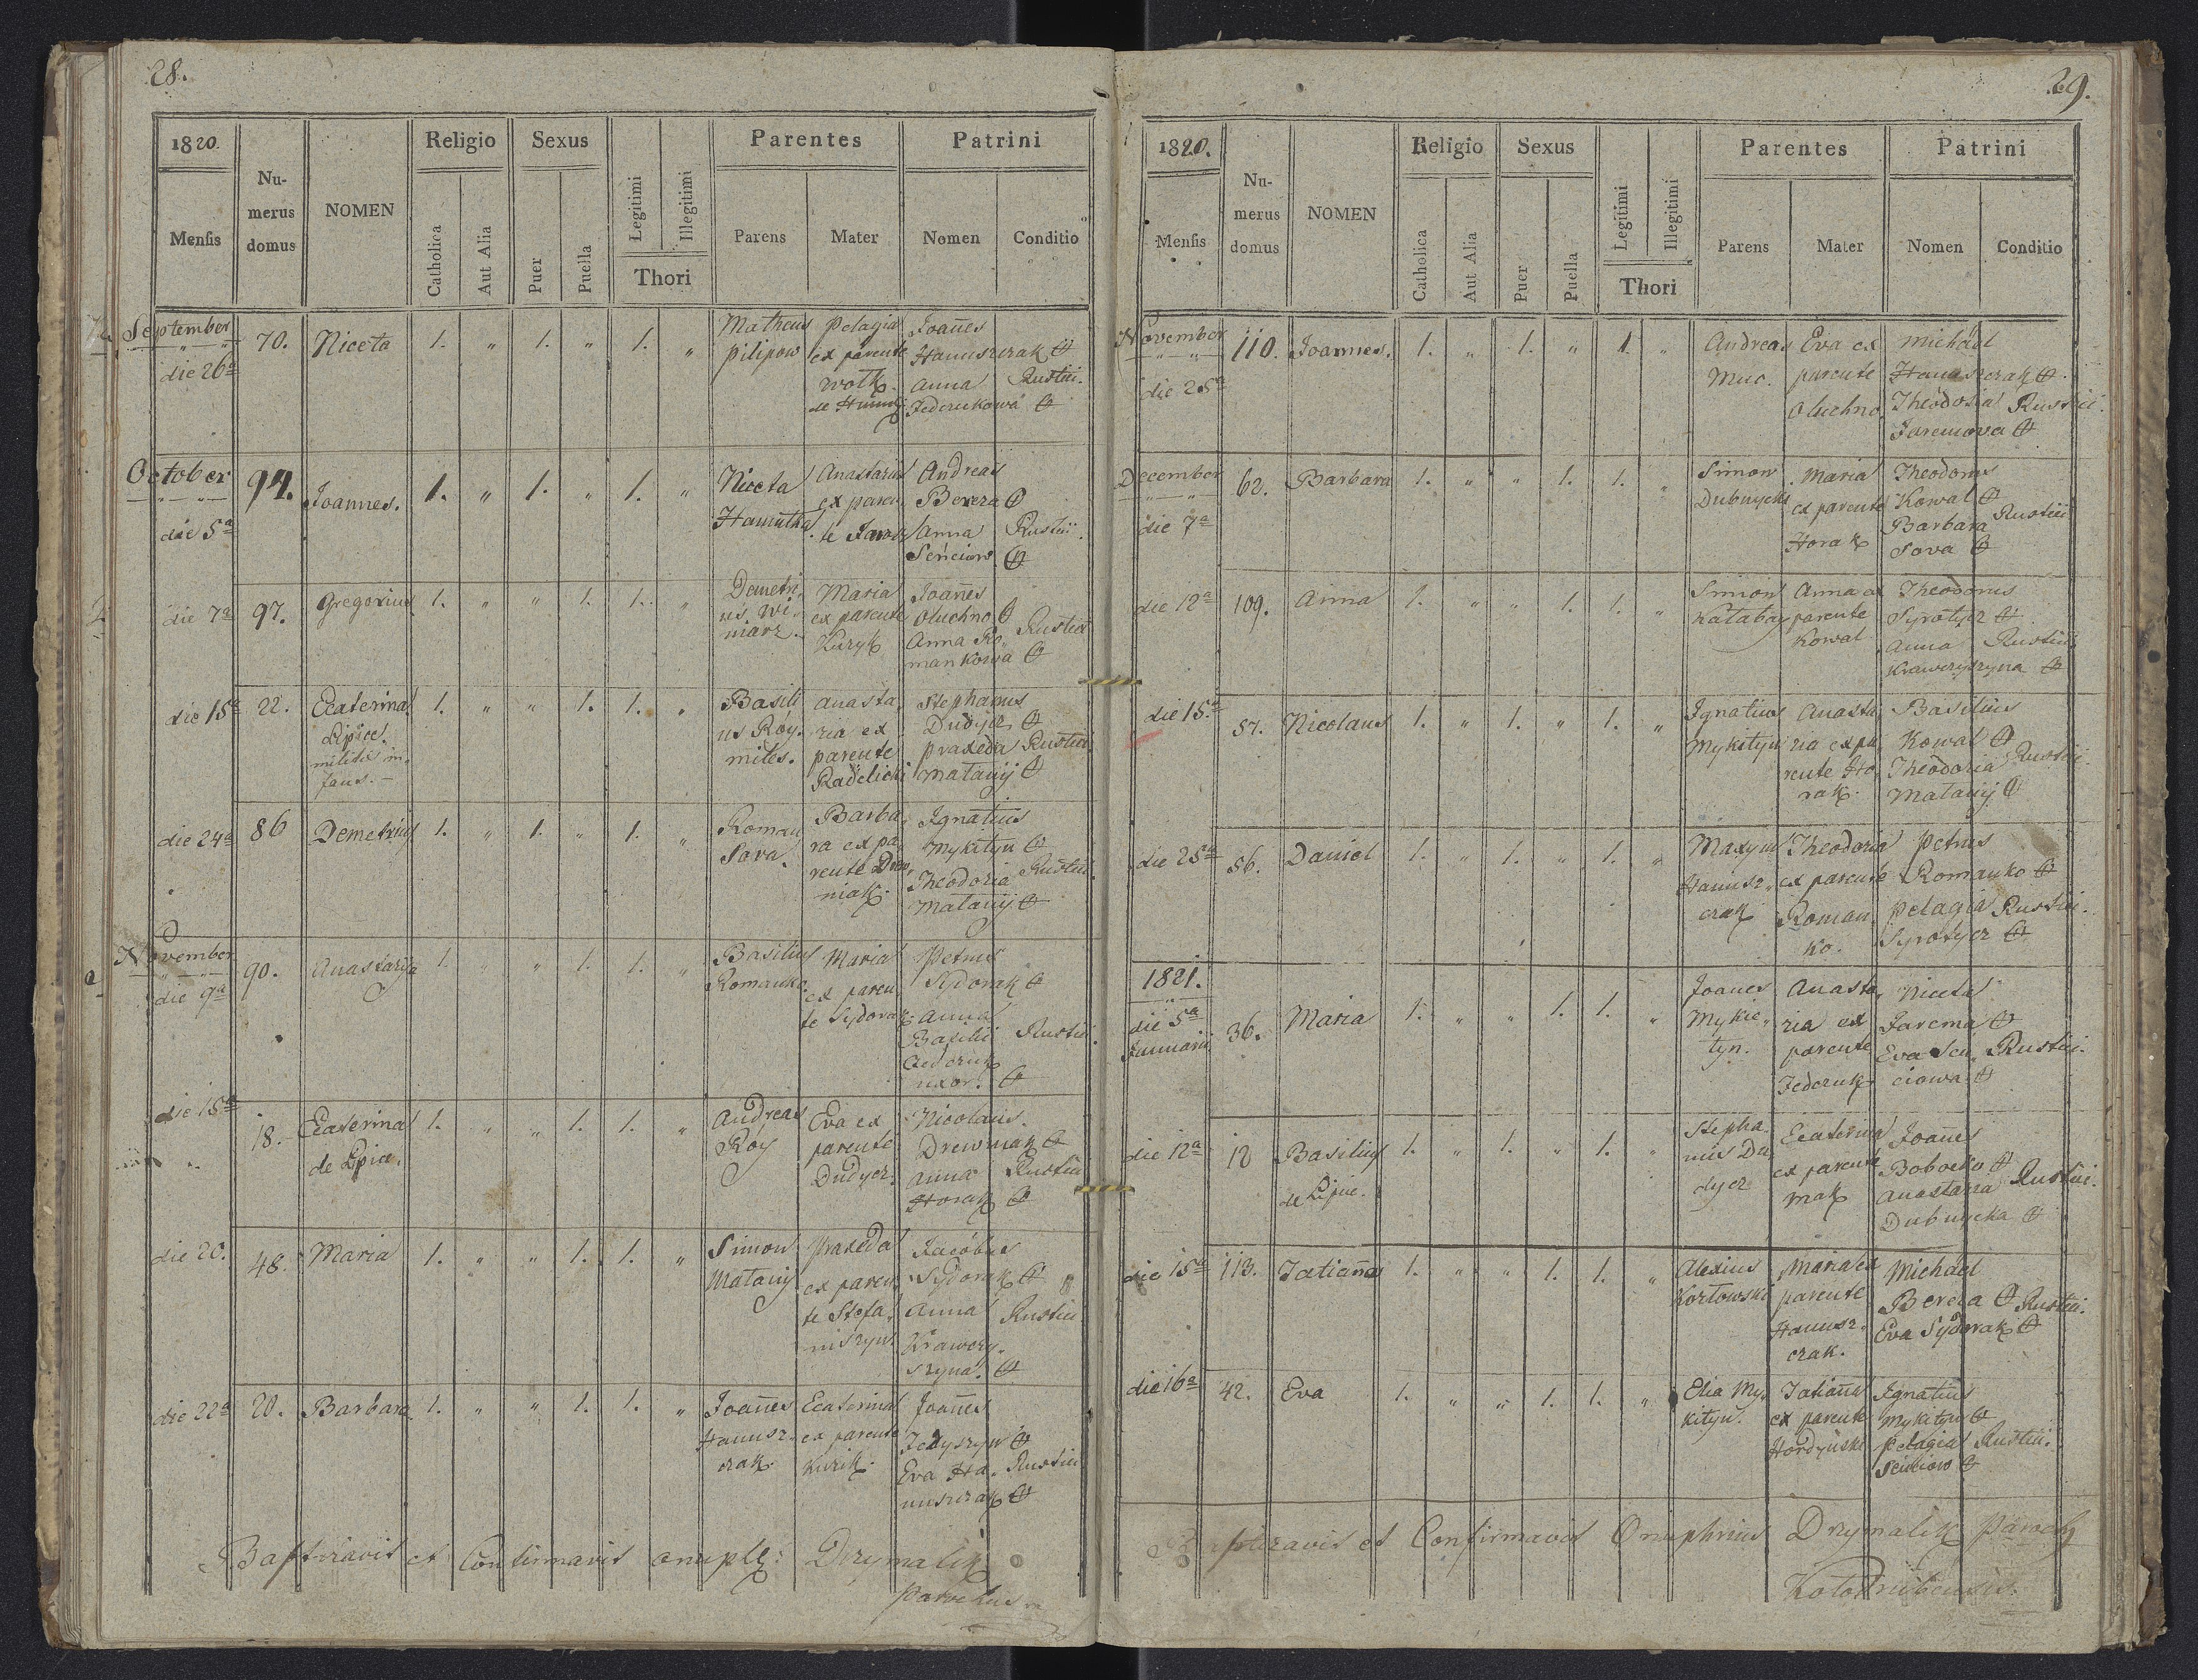 28.
1820.
Nu-
merus
domus
NOMEN
Religio
Sexus
Legitimi
Illegitimi
Thori
Parentes
Patrini
Mensis
Catholica
Aut Alia
Puer
Puella
Parens
Mater
Nomen
Conditio
September
die 26a
70.
Niceta
1. " 1. " 1. "
Matheus
Pilipow
Pelagia
ex parente
Wolk
Joañes
Hanuszczak
Anna
Rustici.
October
die 5a
94.
Joannes.
1. " 1. " 1. "
Niceta
Anastasia
ex paren
te
Andreas
Bereza
Anna
Rustici.
Senciow.
die 7a
97.
Gregorius
1. " " 1. 1. "
Demetri
us Wi
niarz.
Maria
ex parente
Kuryk
Joañes
Oluchno
Anna Ro
mankowa
Rustici
die 15a
22.
Ecaterina
Lipice.
militis in
fans.
1. " " 1. 1. "
Basili
us Roy.
mites.
Anasta
zia ex
parente
Radelicki
Stephanus
Dudycz
Praxeda
Matanij
Rustici
die 24a
86
Demetrius
1. " 1. " 1. "
Roman
Sova.
Barba
ra ex pa
rente Drew
niak.
Ignatius
Mykityn
Theodozia
Matanij
Rustici.
November
die 9a
90.
Anastazija
1. " " 1. 1. "
Basilius
Romanko.
Maria
ex paren
te Sydorak
Petrus
Sydorak
Anna
Basilii
uxor.
Rustici.
die 15a
18.
Ecaterina
de Lipice.
1. " " 1. 1. "
Andreas
Roy
Eva ex
parente
Dudycz.
Nicolaus.
Drewniak
Anna
Horak
Rustici
die 20.
48.
Maria
1. " " 1. 1. "
Simon
Matanij
Praxeda
ex paren
te Stefa
niszyn.
Jacobus
Sydorak
Anna
Krawczy
szyna.
Rustici
die 22a
20.
Barbara
1. " " 1. 1. "
Joañes
Hanusz
czak.
Ecaterina
ex parente
Kurik.
Joañes
Eva Ha
nuszczak
Rustici
Baptizavit et Confirmavit Drymalik
Parochus
29.
1820.
Nu-
merus
domus
NOMEN
Religio
Sexus
Legitimi
Illegitimi
Thori
Parentes
Patrini
Mensis
Catholica
Aut Alia
Puer
Puella
Parens
Mater
Nomen
Conditio
November
die 25a
110.
Joannes.
1. " 1. " 1. "
Andreas
Muc.
Eva ex
parente
Oluchno
Michael
Hanuszczak
Theodosia
Jaremova
Rustici.
December
die 7a
62.
Barbara
1. " " 1. 1. "
Simon
Dubnycki
Maria
ex parente
Horak
Theodorus
Kowal
Barbara
Sova
Rustici
die 12a
109.
Anna
1. " " 1. 1. "
Simon
Kalabay
Anna ex
parente
Kowal
Theodorus
Syrotycz
Anna
Krawczyszyna
Rustici
die 15a
57.
Nicolaus
1. " 1. " 1. "
Ignatius
Mykityn
Anasta
zia ex pa
rente Ho
rak.
Basilius
Kowal
Theodozia
Matanij
Rustici.
die 25a
56.
Daniel
1. " 1. " 1. "
Maxym
Hanusz
czak
Theodozia
ex parente
Roman
ko.
Petrus
Romanko
Pelagia
Syrotycz
Rustici.
1821.
die 5a
Januarii
36.
Maria
1. " " 1. 1. "
Joanes
Mykie
tyn.
Anasta
zia ex
parente
Niceta
Jarema
Eva Sen
ciowa
Rustici.
die 12a
12
Basilius
de Lipice.
1. " 1. " 1. "
Stepha
nus Du
dycz
Ecaterina
ex parente
Mak
Joañes
Bobocko
Anastazia
Dubnycka
Rustici.
die 15a
113.
Tatianna
1. " " 1. 1. "
Alexius
Kozłowski
Maria ex
parente
Hanusz
czak.
Michael
Bereza
Eva Sydorak
Rustici.
die 16a
42.
Eva
1. " " 1. 1. "
Elia My
kityn.
Tatianna
ex parente
Hordynski
Ignatius
Mykityn
Pelagia
Senciow
Rustici.
Baptizavit et Confirmavit Onuphrius Drymalik Parochus
Kołodrubensis.